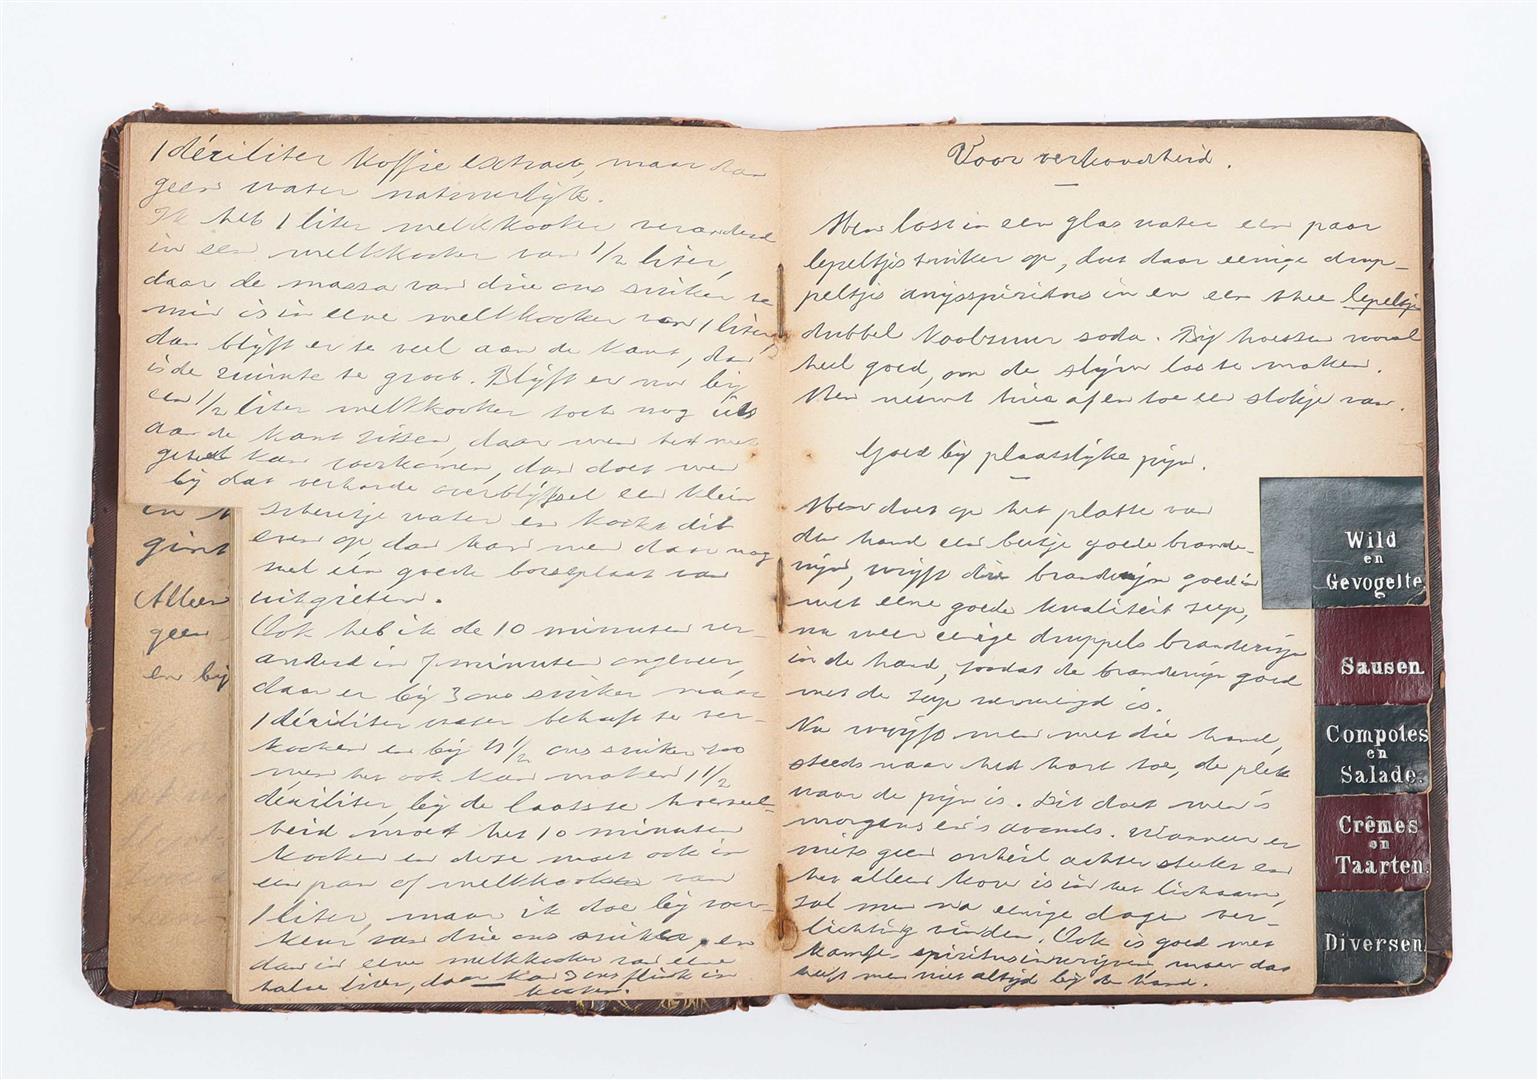 1 déciliter koffie extract, maar dan
geen water natuurlijk.
Ik heb 1 liter melkkooker veranderd
in een melkkooker van 1/2 liter,
daar de massa van drie ons suiker te
min is in eene melkkooker van 1 liter,
dan blijft er te veel aan de kant, dan
is de ruimte te groot. Blijft er nu bij
een 1/2 liter melkkooker toch nog iets
aan de kant zitten, daar men het niet
geheel kan voorkomen, dan doet men
bij dat verharde overblijfsel een klein
scheutje water en kookt dit
even op, dan kan men daar nog
wel een goede borstplaat van
uitgieten.
Ook heb ik de 10 minuten ver-
anderd in 7 minuten ongeveer,
daar er bij 3 ons suiker maar
1 déciliter water behoeft te ver-
kooken en bij 4 1/2 ons suiker zoo
men het ook kan maken 1 1/2
déciliter, bij de laatste hoeveel-
heid moet het 10 minuten
kooken en deze moet ook in
een pan of melkkooker van
1 liter, maar ik doe bij voor-
keur van drie ons suiker, en
dan in eene melkkooker van eene
halve liter, daar kan 3 ons flink in
kooken.
in
gint
Alleen
geen
en bij
Voor verkoudheid.
Men lost in een glas water een paar
lepeltjes suiker op, doet daar eenige drup-
peltjes anijsspiritus in en een thee lepeltje
dubbel koolzuur soda. Bij hoesten vooral
heel goed, om de slijm los te maken.
Men neemt hier af en toe een slokje van.
Goed bij plaatslijke pijn.
Men doet op het platte van
de hand een beetje goede brande-
wijn, wrijft die brandewijn goed in
met eene goede kwaliteit zeep,
nu weer eenige druppels brandewijn
in de hand, zoodat de brandewijn goed
met de zeep vermengd is.
Nu wrijft men met die hand,
steeds naar het hart toe, de plek
waar de pijn is. Dit doet men 's
morgens en 's avonds. Wanneer er
mits geen onheil achter steekt en
het alleen kou is in het lichaam,
zal men na eenige dagen ver-
lichting vinden. Ook is goed met
kamfer spiritus inwrijven maar dat
heeft men niet altijd bij de hand.
Wild
en
Gevogelte.
Sausen.
Compotes
en
Salade.
Crêmes
en
Taarten.
Diversen.